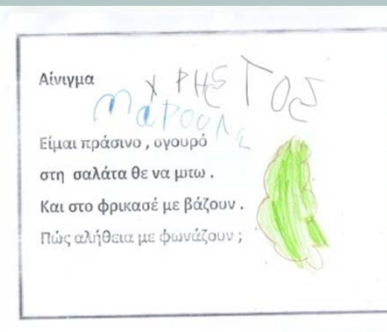 Αίνιγμα
ΧΡΗΣΤΟΣ
ΜΑΡΟΥΛΙ
Είμαι πράσινο , σγουρό
στη σαλάτα θε να μπω .
Και στο φρικασέ με βάζουν .
Πώς αλήθεια με φωνάζουν ;